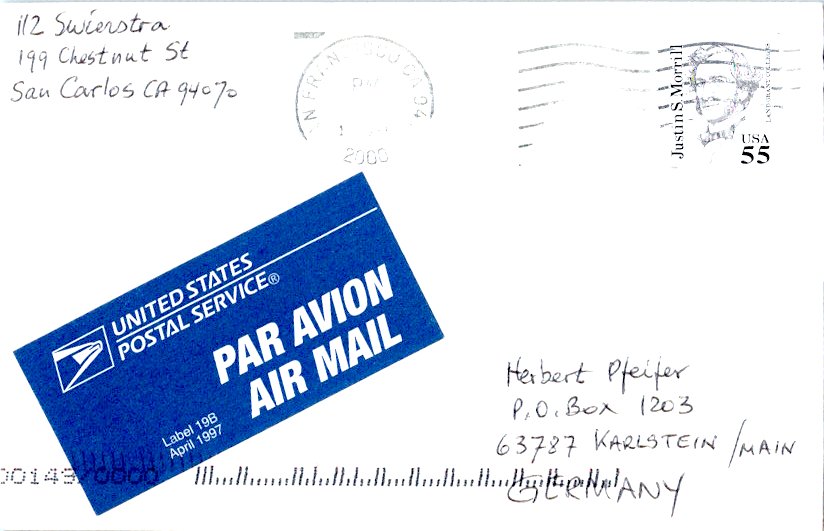 112 Swierstra
199 Chestnut St
San Carlos CA 94070
2000
Justin S. Morrill
LAND GRANT COLLEGES
USA
55
UNITED STATES
POSTAL SERVICE®
PAR AVION
AIR MAIL
Label 19B
April 1997
Herbert Pfeifer
P.O. Box 1203
63787 KARLSTEIN /MAIN
GERMANY